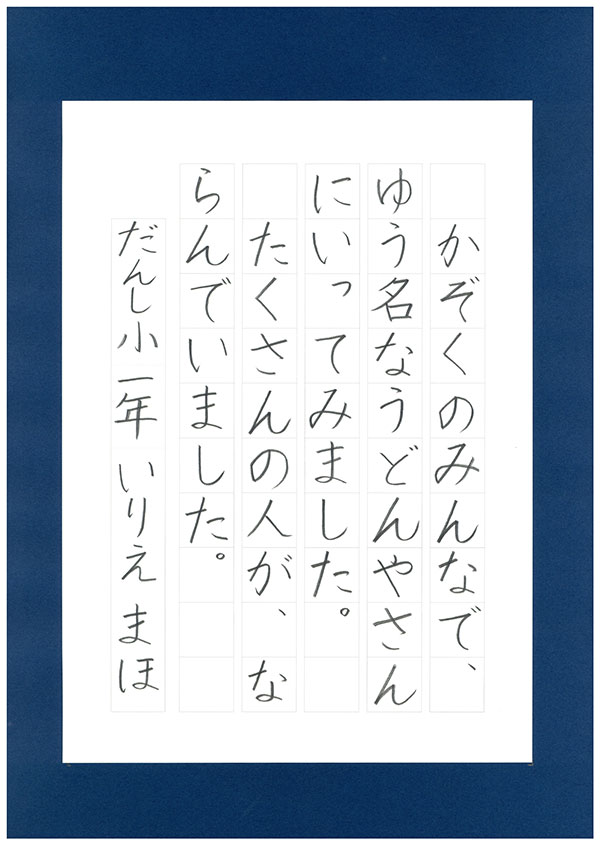 かぞくのみんなで、
ゆう名なうどんやさん
にいってみました。
たくさんの人が、な
らんでいました。
だんし小一年 いりえ まほ